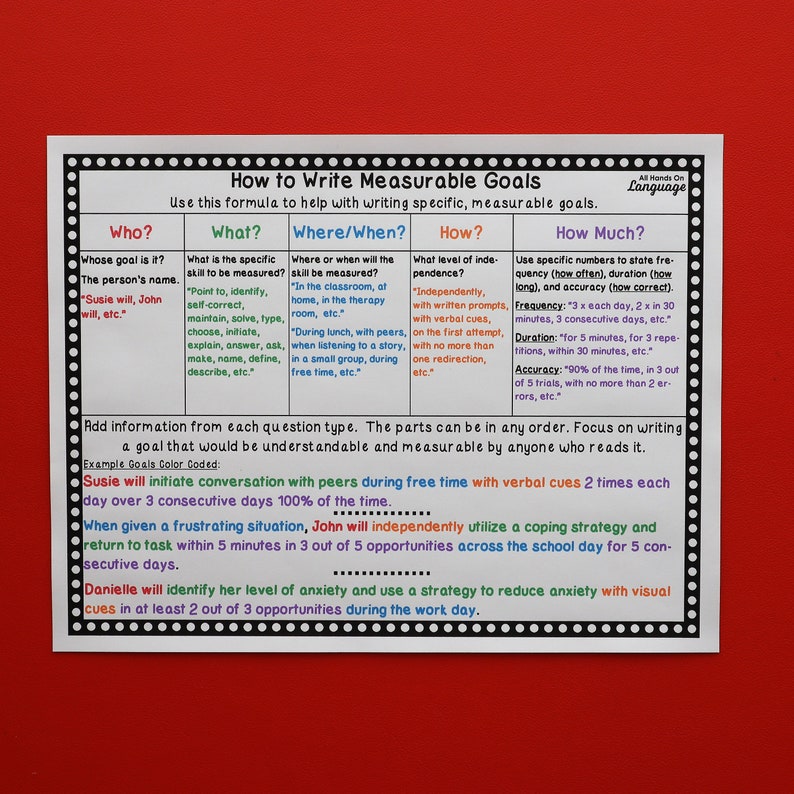 How to Write Measurable Goals
All Hands On
Language
Use this formula to help with writing specific, measurable goals.
Who?
Whose goal is it?
The person's name.
"Susie will, John
will, etc."
What?
What is the specific
skill to be measured?
"Point to, identify,
self-correct,
maintain, solve, type,
choose, initiate,
explain, answer, ask,
make, name, define,
describe, etc."
Where/When?
Where or when will the
skill be measured?
"In the classroom, at
home, in the therapy
room, etc."
"During lunch, with peers,
when listening to a story,
in a small group, during
free time, etc."
How?
What level of inde-
pendence?
"Independently,
with written prompts,
with verbal cues,
on the first attempt,
with no more than
one redirection,
etc."
How Much?
Use specific numbers to state fre-
quency (how often), duration (how
long), and accuracy (how correct).
Frequency: "3 x each day, 2 x in 30
minutes, 3 consecutive days, etc."
Duration: "for 5 minutes, for 3 repe-
titions, within 30 minutes, etc."
Accuracy: "90% of the time, in 3 out
of 5 trials, with no more than 2 er-
rors, etc."
Add information from each question type. The parts can be in any order. Focus on writing
a goal that would be understandable and measurable by anyone who reads it.
Example Goals Color Coded:
Susie will initiate conversation with peers during free time with verbal cues 2 times each
day over 3 consecutive days 100% of the time.
When given a frustrating situation, John will independently utilize a coping strategy and
return to task within 5 minutes in 3 out of 5 opportunities across the school day for 5 con-
secutive days.
Danielle will identify her level of anxiety and use a strategy to reduce anxiety with visual
cues in at least 2 out of 3 opportunities during the work day.